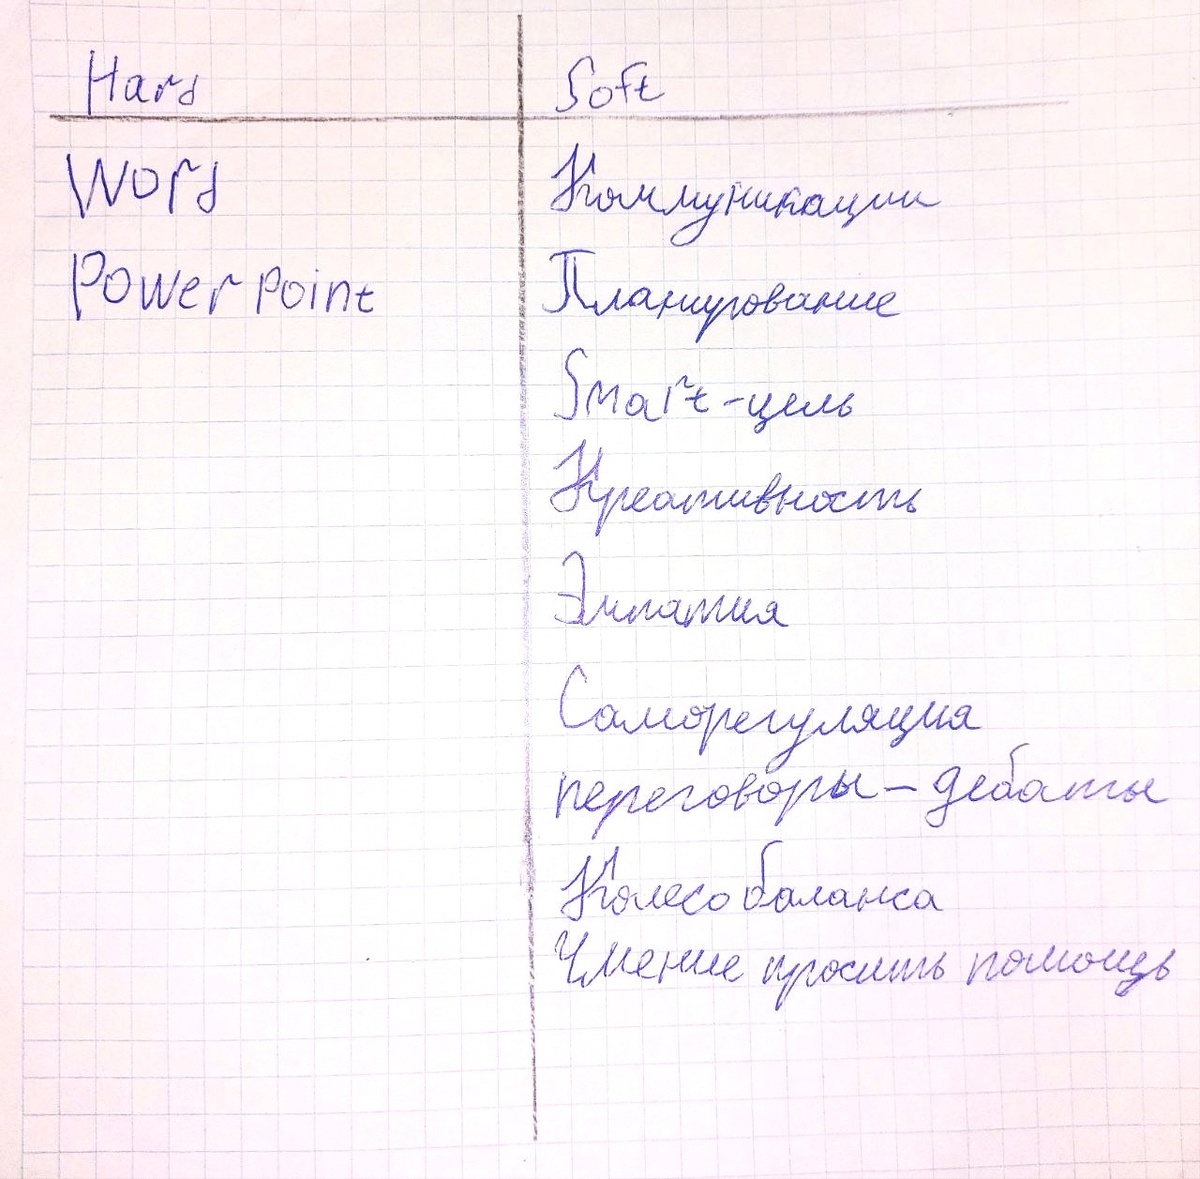 Hard Soft
Word Коммуникации
PowerPoint Планирование
Smart-цель
Креативность
Эмпатия
Саморегуляция
переговоры – дебаты
Колесо баланса
Умение просить помощь